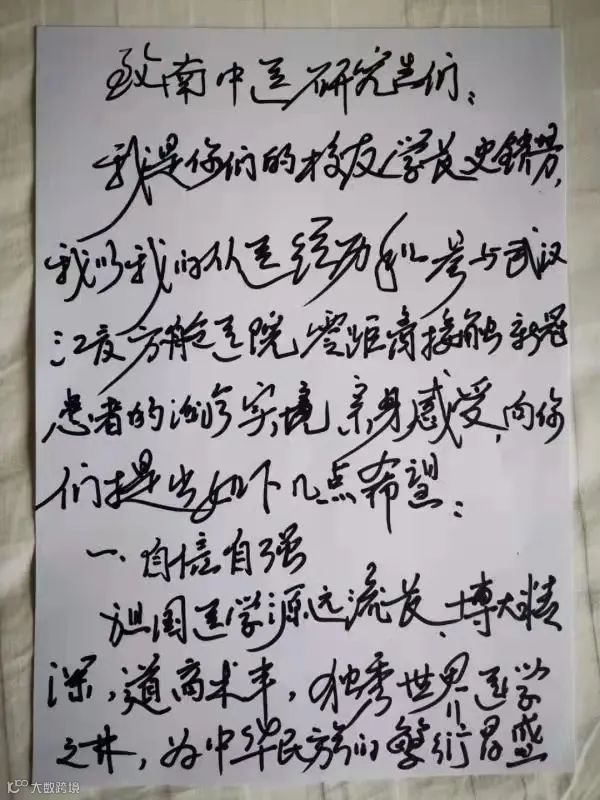 致南中医研究生们：
我是你们的校友学长史锁芳，
我以我的从医经历和参与武汉
江夏方舱医院零距离接触新冠
患者的诊疗实境亲身感受，向你
们提出如下几点希望：
一、自信自强
祖国医学源远流长、博大精
深，道高术丰，独秀世界医学
之林，为中华民族的繁衍昌盛
大数跨境